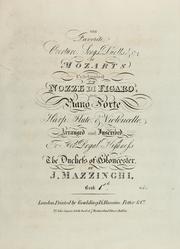 THE
Favorite
Overture, Songs, Duetts, &c.
in
MOZART'S
Celebrated
NOZZE DI FIGARO,
Piano Forte
Harp, Flute & Violoncello,
Arranged and Inscribed
Royal Highness
The Duchess of Gloucester,
BY
J. MAZZINGHI.
Book 1st
London, Printed by Goulding, D'Almaine, Potter & Co.